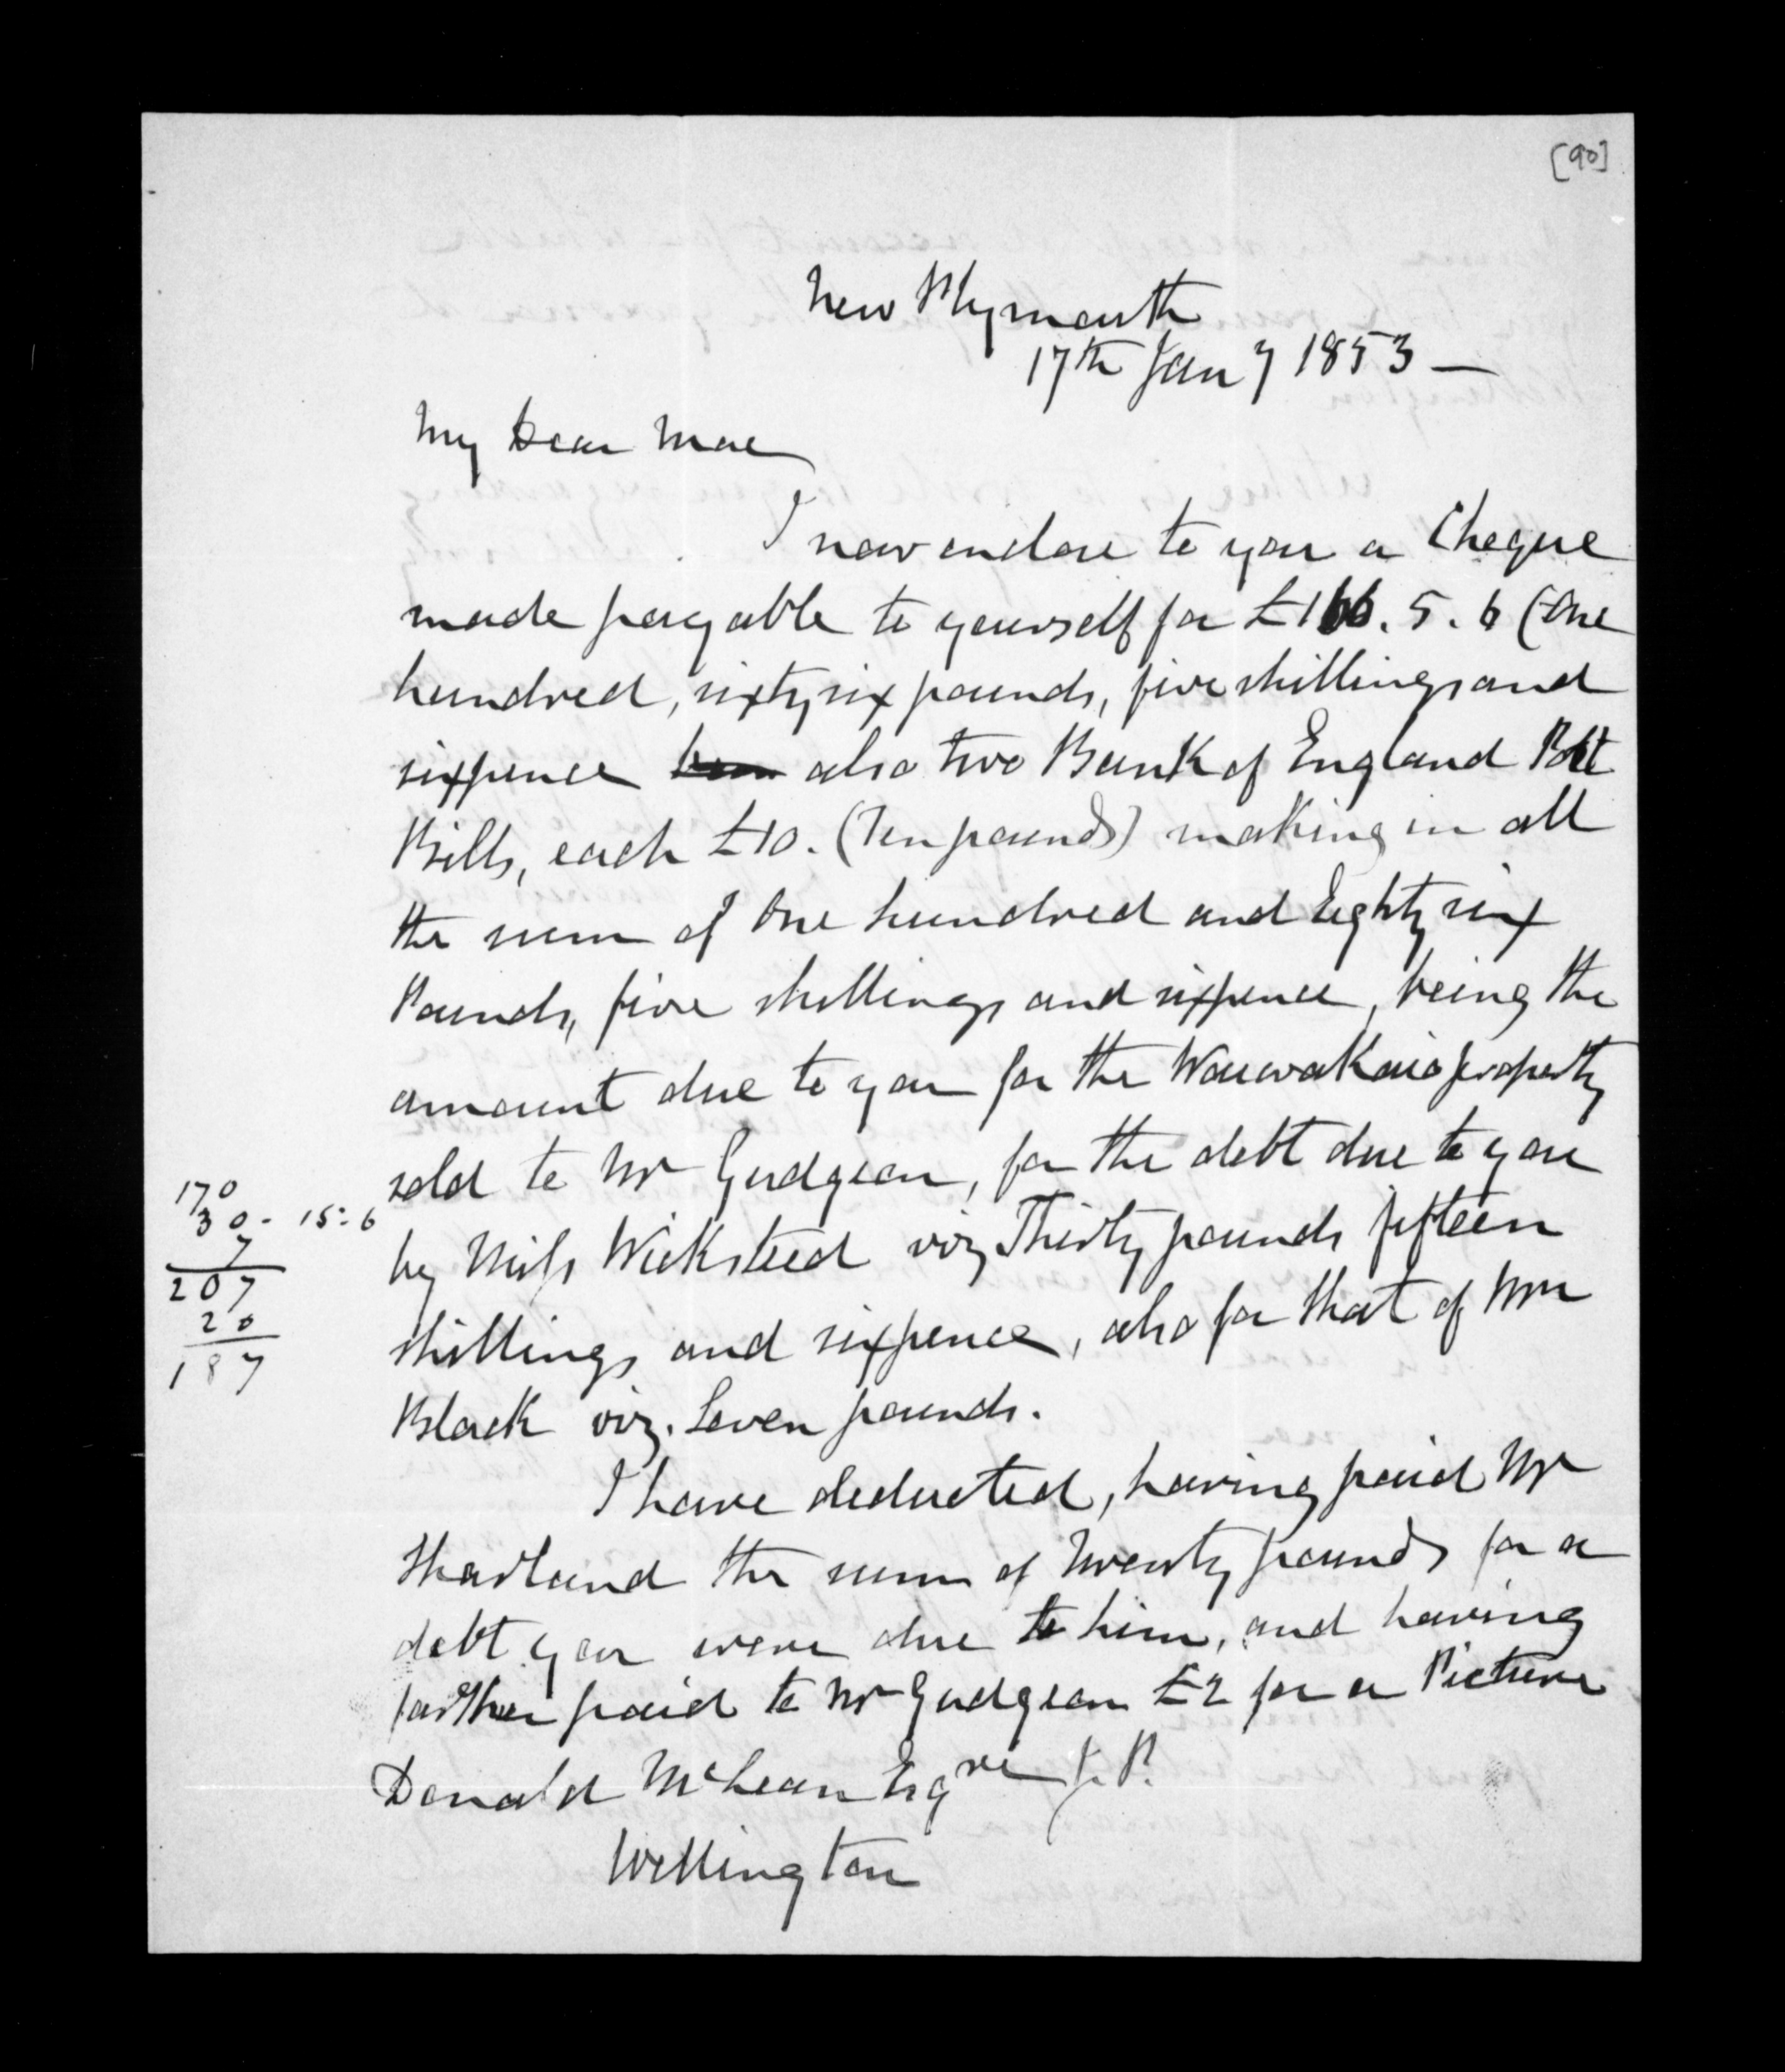 [90]
New Plymouth
17th Jany 1853 —
My Dear Mac
I now enclose to you a Cheque
made payable to yourself for £166. 5. 6 (One
hundred, sixty six pounds, five shillings and
sixpence also two Bank of England Post
Bills, each £10. (Ten pounds) making in all
the sum of One hundred and Eighty six
Pounds, five shillings and sixpence, being the
amount due to you for the Waiwakaio property
sold to Mr Gudgeon, for the debt due to you
by Miss Wicksteed viz Thirty pounds fifteen
shillings and sixpence, also for that of Mr
Black viz. Seven pounds.
170
30 - 15:6
7
207
20
187
I have deducted, having paid Mr
Harland the sum of Twenty pounds for a
debt you were due to him, and having
farther paid to Mr Gudgeon £2 for a Picture
Donald McLean Esqre J.P.
Wellington